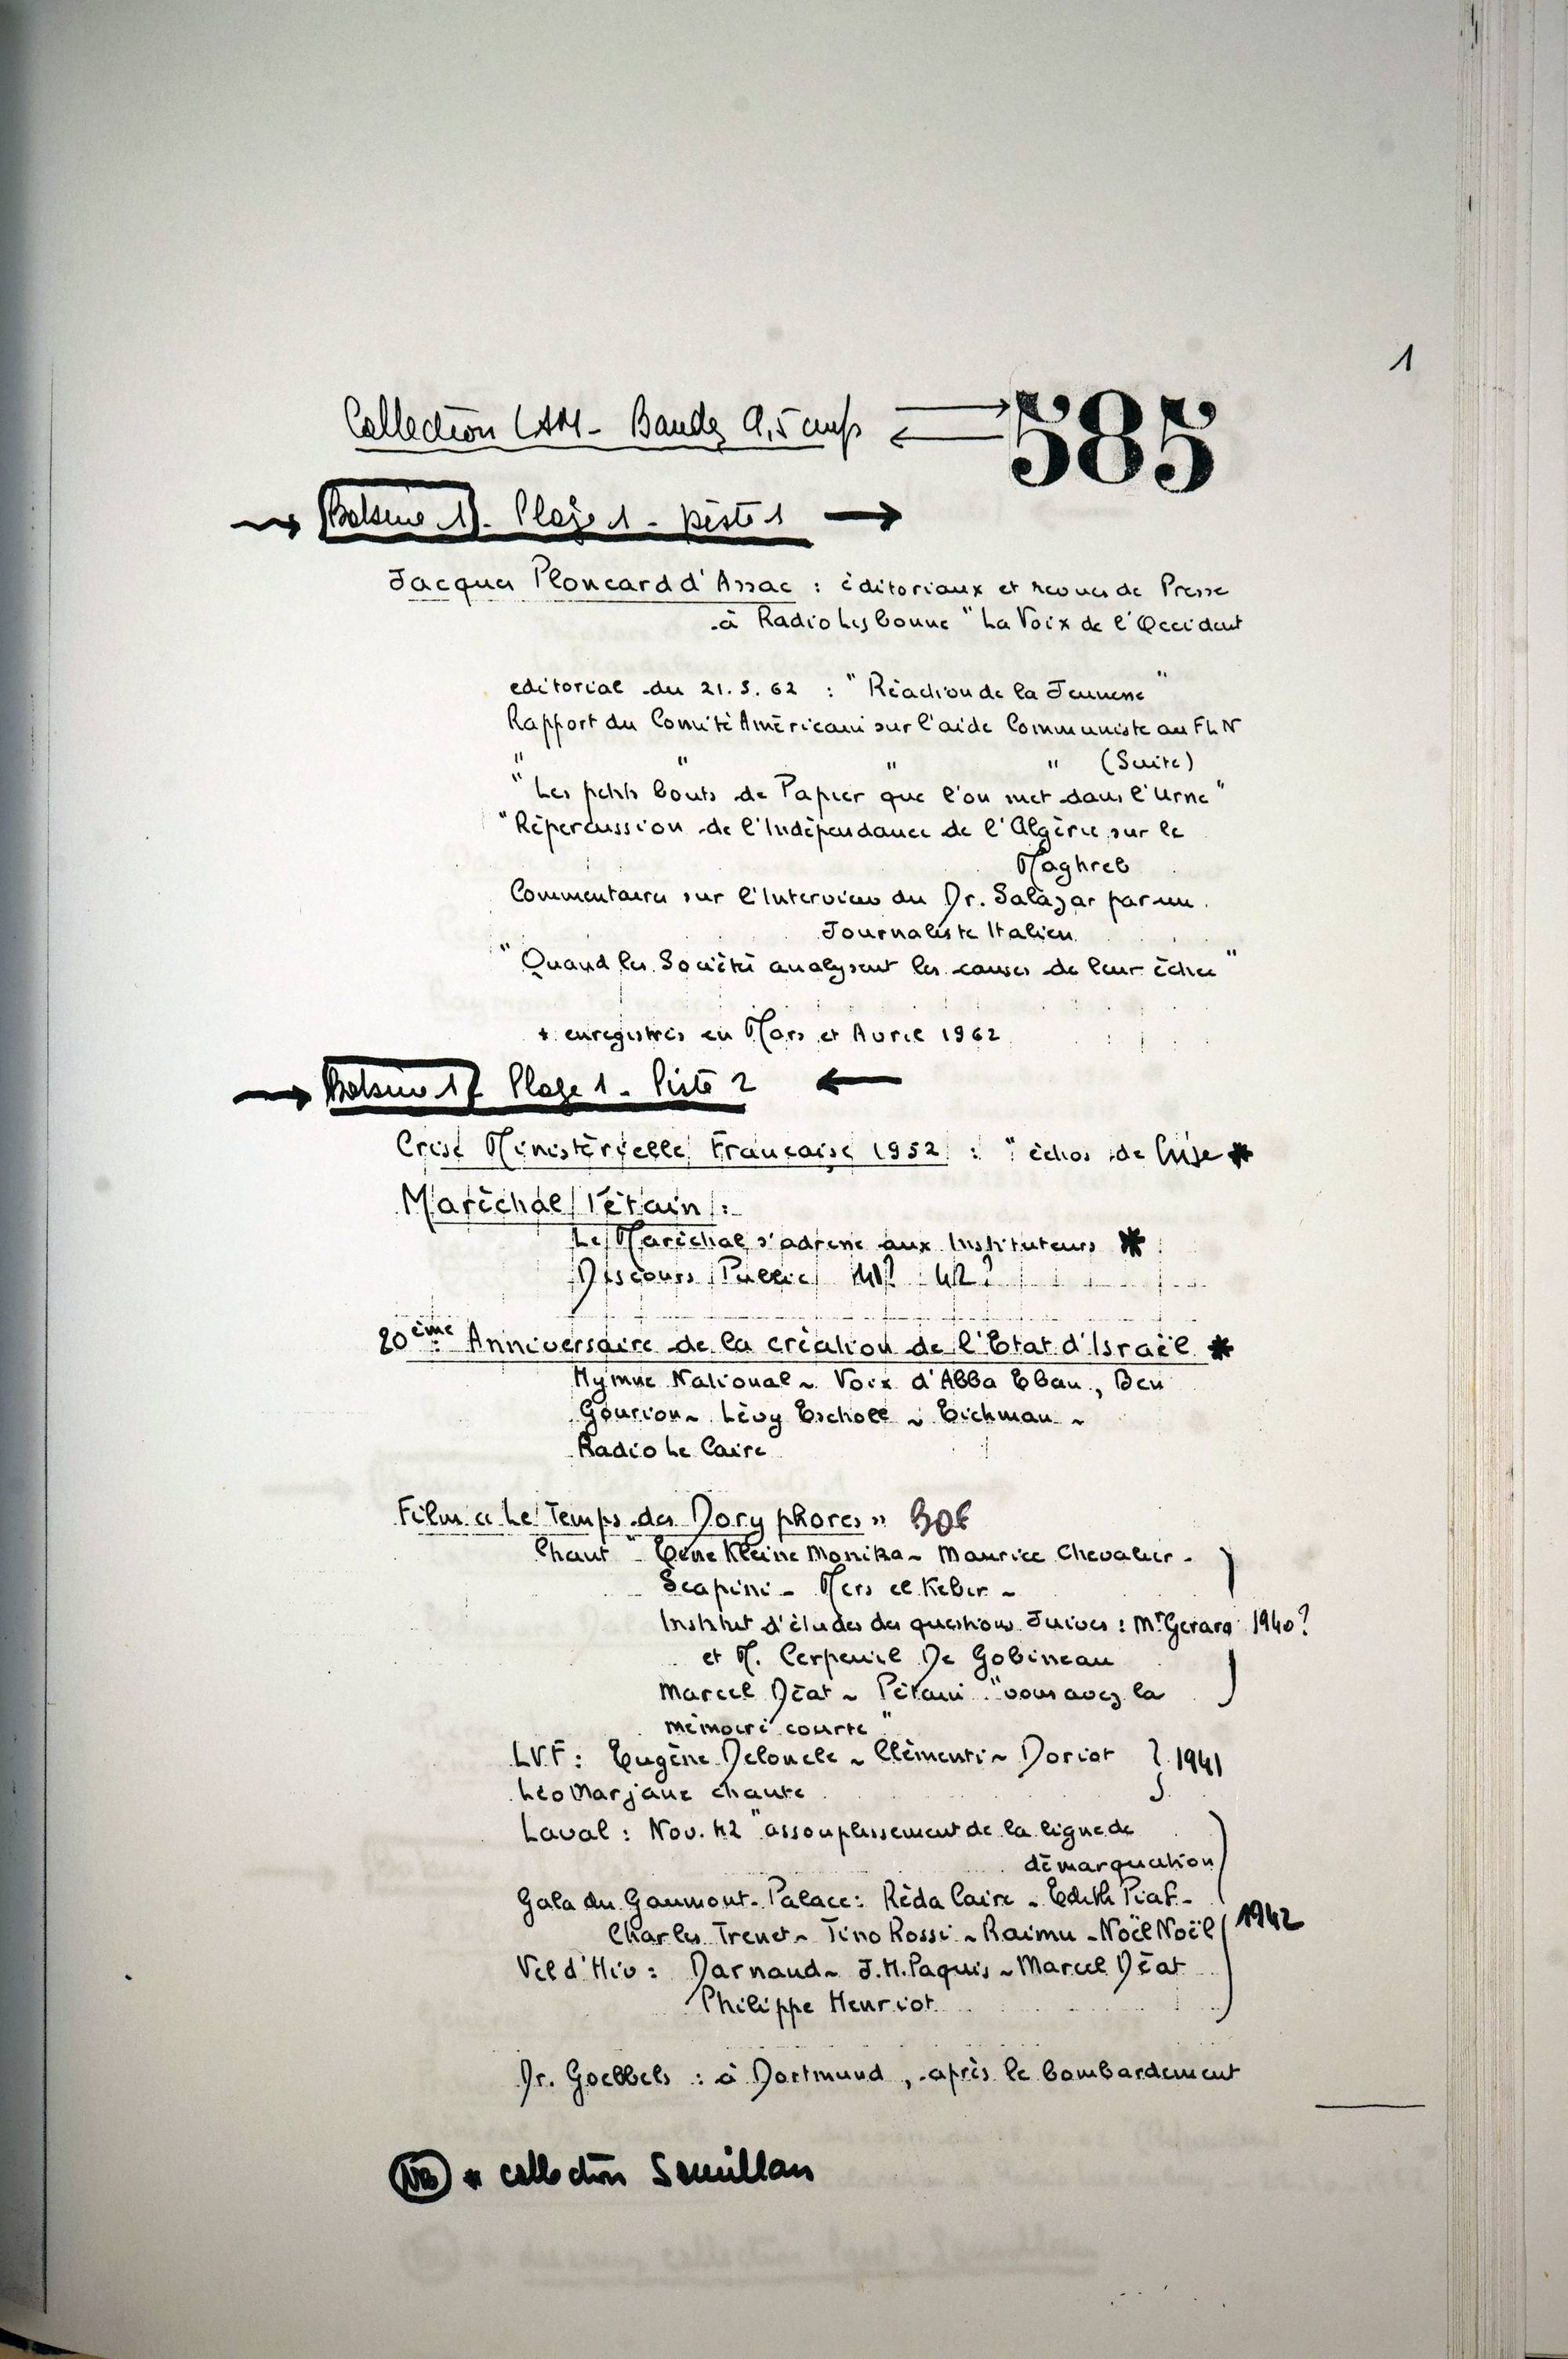 1
Collection LAM - Bandes 9,5 cm/s
585
Bobine 1 - Plage 1 - piste 1
Jacques Ploncard d'Assac : éditoriaux et revues de Presse
à Radio Lisbonne "La Voix de l'Occident
editorial du 21.3.62 : "Réaction de la Jeunesse"
Rapport du Comité Américain sur l'aide Communiste au FLN
" " " " (Suite)
"Les petits bouts de Papier que l'on met dans l'Urne"
"Répercussion de l'Indépendance de l'Algérie sur le
Maghreb
Commentaires sur l'Interview du Dr. Salazar par un
Journaliste Italien
"Quand les Sociétés analysent les causes de leur échec"
* enregistrés en Mars et Avril 1962
Bobine 1 - Plage 1 - Piste 2
Crise Ministérielle Française 1952 : "échos de Crise *
Maréchal Pétain :
Le Maréchal s'adresse aux Instituteurs *
Discours Public 41? 42?
20ème Anniversaire de la création de l'Etat d'Israël *
Hymne National ~ Voix d'Abba Eban, Ben
Gourion ~ Lévy Escholl ~ Eichman ~
Radio Le Caire
Film "Le Temps des Doryphores"
Chant " Eine Kleine Monika ~ Maurice Chevalier -
Scapini - Mers el Kebir ~
Institut d'études des questions Juives : Mr Gerard 1940?
et M. De Gobineau
Marcel Déat ~ Pétain "vous avez la
mémoire courte"
LVF : Eugène Deloncle ~ Clémenti ~ Doriot } 1941
Léo Marjane chante
Laval : Nov. 42 "assouplissement de la ligne de
démarquation
Gala du Gaumont-Palace : Réda Caire - Edith Piaf -
Charles Trenet ~ Tino Rossi ~ Raimu - Noël Noël 1942
Vel d'Hiv : Darnand ~ J.H. Paquis ~ Marcel Déat
Philippe Henriot
Dr. Goebbels : à Dortmund, après le bombardement
NB * collection